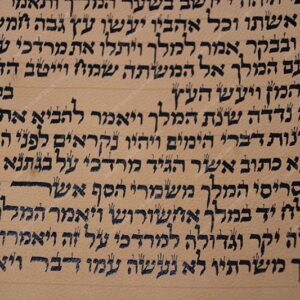 יושב בשער המלך ותאמר
אשתו וכל אהביו יעשו עץ גבה
ובבקר אמר למלך ויתלו את מרדכי
עם המלך אל המשתה שמח וייטב
המן ויעש העץ
נדדה שנת המלך ויאמר להביא את
נות דברי הימים ויהיו נקראים לפני
א כתוב אשר הגיד מרדכי על בגתנא
סריסי המלך משמרי הסף אשר
ח יד במלך אחשורוש ויאמר המלך
ה יקר וגדולה למרדכי על זה ויאמרו
משרתיו לא נעשה עמו דבר ויא